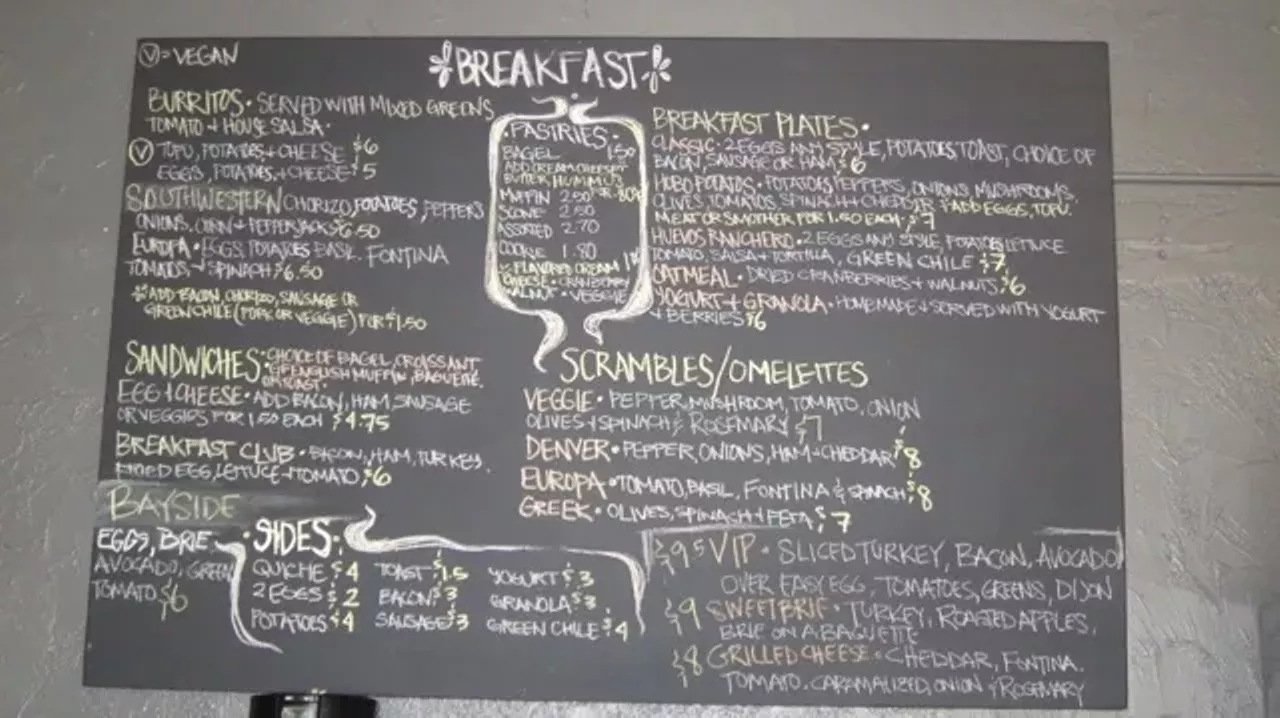 Ⓥ = VEGAN
BREAKFAST
BURRITOS • SERVED WITH MIXED GREENS
TOMATO + HOUSE SALSA •
Ⓥ TOFU, POTATOES, + CHEESE $6
EGGS, POTATOES, + CHEESE $5
SOUTHWESTERN CHORIZO, POTATOES, PEPPERS
ONIONS, CORN + PEPPERJACK $6.50
EUROPA • EGGS, POTATOES BASIL, FONTINA
TOMATOS + SPINACH $6.50
* ADD BACON, CHORIZO, SAUSAGE OR
GREEN CHILE (PORK OR VEGGIE) FOR $1.50
SANDWICHES: CHOICE OF BAGEL, CROISSANT
ENGLISH MUFFIN, BAGUETTE,
OR TOAST •
EGG + CHEESE • ADD BACON, HAM, SAUSAGE
OR VEGGIES FOR 1.50 EACH $4.75
BREAKFAST CLUB • BACON, HAM, TURKEY,
FRIED EGG, LETTUCE + TOMATO $6
BAYSIDE
EGGS, BRIE
AVOCADO, GREEN
TOMATO $6
• PASTRIES •
BAGEL 1.50
ADD CREAM CHEESE
BUTTER HUMMUS
FOR .80¢
MUFFIN 2.50
SCONE 2.50
ASSORTED 2.70
COOKIE 1.80
FLAVORED CREAM
CHEESE • CRANBERRY
WALNUT • VEGGIE
BREAKFAST PLATES •
CLASSIC • 2 EGGS ANY STYLE, POTATOES, TOAST, CHOICE OF
BACON, SAUSAGE OR HAM $6
HOBO POTATOS • POTATOES, PEPPERS, ONIONS, MUSHROOMS,
OLIVES, TOMATOS, SPINACH + CHEDDER ADD EGGS, TOFU,
MEAT OR SMOTHER FOR 1.50 EACH • $7
HUEVOS RANCHERO • 2 EGGS ANY STYLE, POTATO, LETTUCE
TOMATO, SALSA + TORTILLA, GREEN CHILE $7
OATMEAL • DRIED CRANBERRIES + WALNUTS $6
YOGURT + GRANOLA • HOMEMADE + SERVED WITH YOGURT
+ BERRIES $6
SCRAMBLES/OMELETTES
VEGGIE • PEPPER, MUSHROOM, TOMATO, ONION
OLIVES + SPINACH & ROSEMARY $7
DENVER • PEPPER, ONIONS, HAM + CHEDDAR $8
EUROPA • TOMATO, BASIL, FONTINA & SPINACH $8
GREEK • OLIVES, SPINASH + FETA $7
• SIDES •
QUICHE $4 TOAST $1.5 YOGURT $3
2 EGGS $2 BACON $3 GRANOLA $3
POTATOES $4 SAUSAGE $3 GREEN CHILE $4
$9.5 VIP • SLICED TURKEY, BACON, AVOCADO
OVER EASY EGG, TOMATOES, GREENS, DIJON
$9 SWEET BRIE • TURKEY, ROASTED APPLES,
BRIE ON A BAGUETTE
$8 GRILLED CHEESE • CHEDDAR, FONTINA,
TOMATO, CARAMALIZED, ONION & ROSEMARY